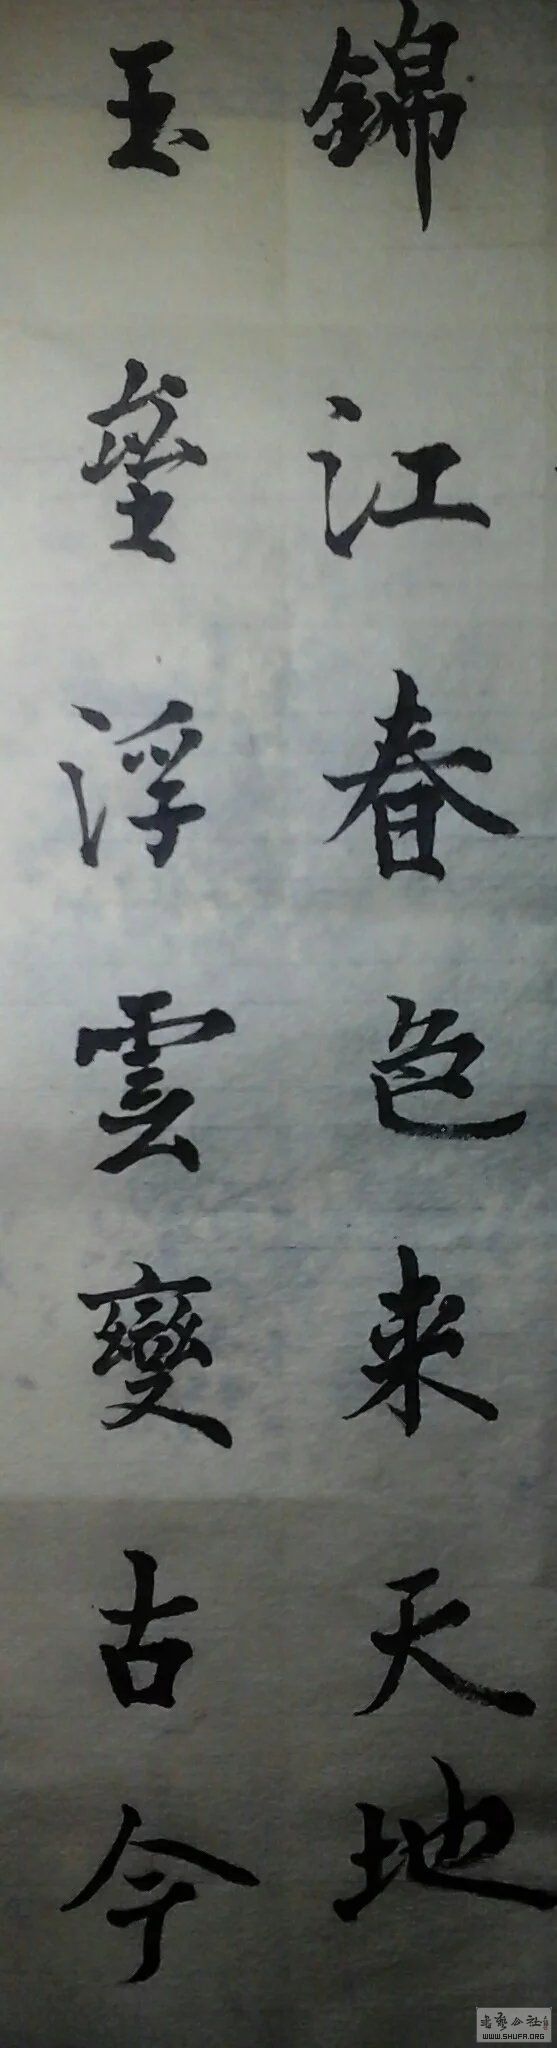 錦江春色来天地
玉垒浮雲變古今
書藝公社
WWW.SHUFA.ORG